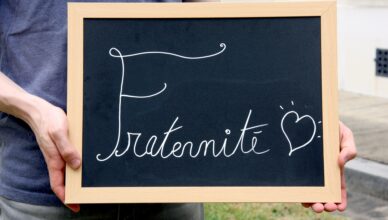 Fraternité